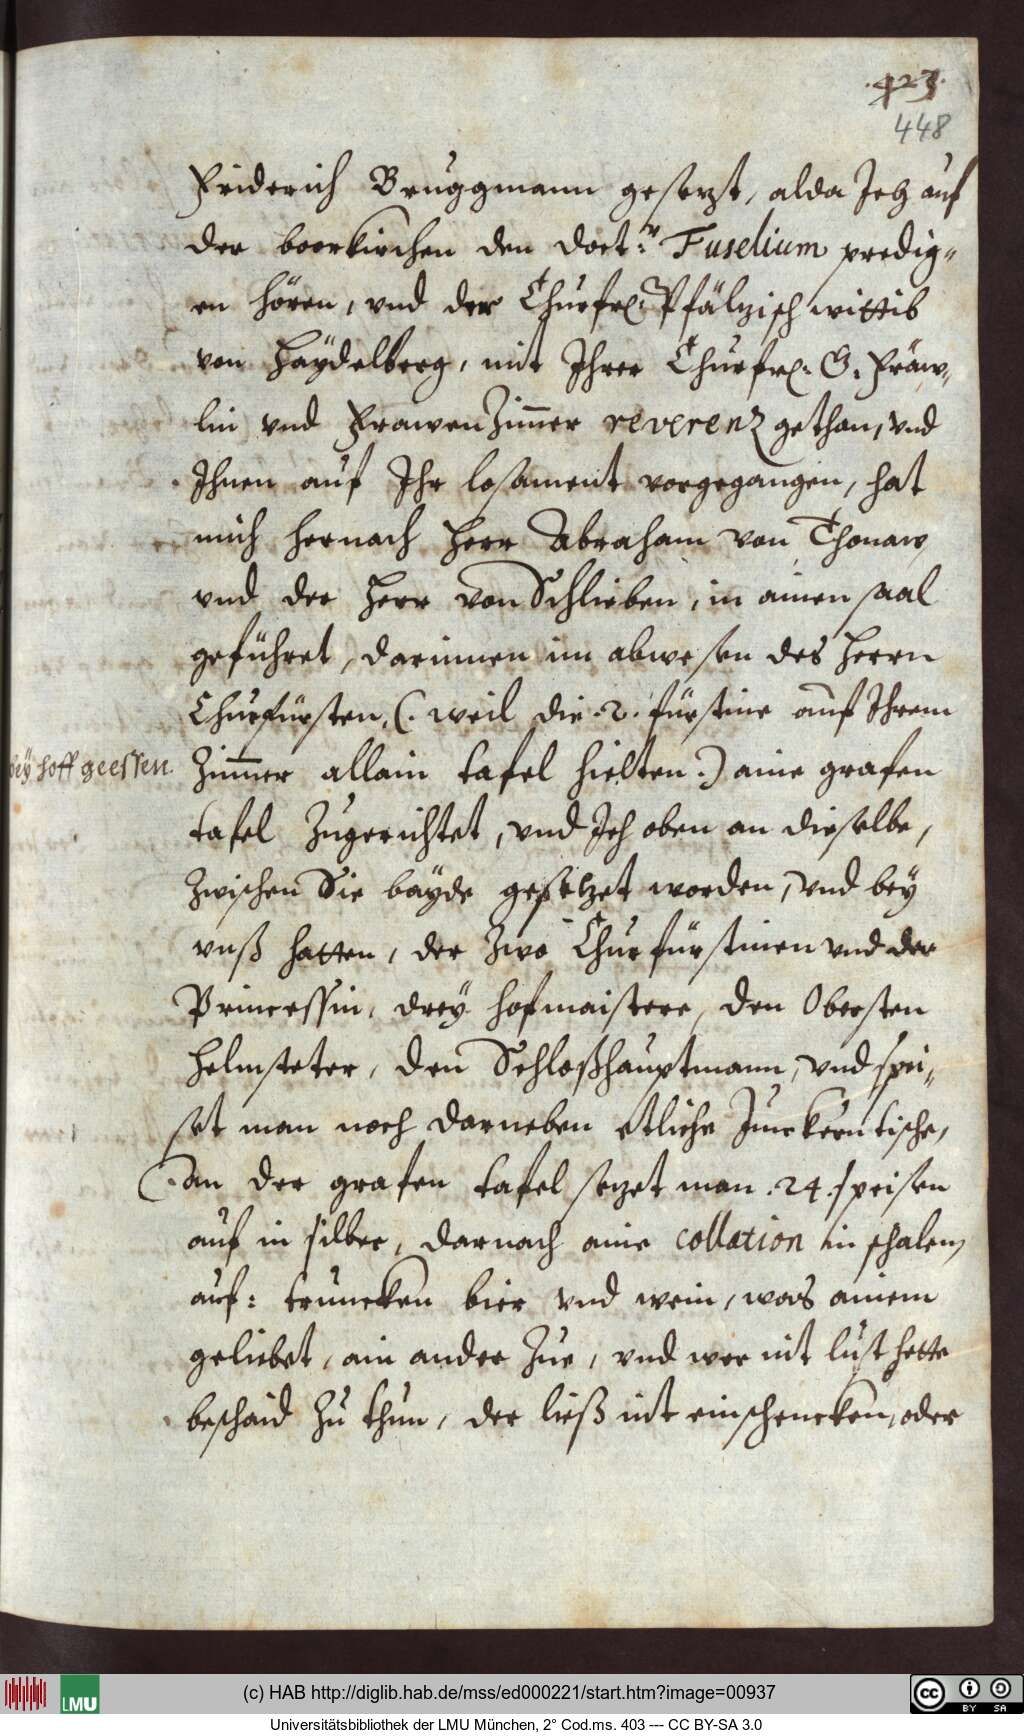 .423.
448
Friderich Bruggmann gesetzt, alda Ich auf
der boorkirchen den doct:r Fuselium predig-
en hören, vnd der Churfr: Pfältzisch wittib
von Haydelberg, mit Ihrer Churfr: G: Fräw-
lin vnd Frawen Zimmer reverenz gethan, vnd
Ihnen auf Ihr losament vorgegangen, hat
mich hernach Herr Abraham von Thonaw,
vnd der Herr von Schlieben, in ainen saal
geführet, darinnen im abwesen des Herrn
Churfürsten, (. weil die .2. fürstine auf Ihrem
bey hoff geessen.
Zimmer allain tafel hielten .) aine grafen
tafel Zugerichtet, vnd Ich oben an dieselbe,
Zwischen Sie bayde gesetzet worden, vnd bey
vnß hatten, der Zwo Churfürstinen vnd der
Princessin, drey hofmaistere, den Obersten
Helmsteter, den Schloßhauptmann, vnd spei-
set man noch darneben etliche Junckern tische,
(. an der grafen tafel setzet man .24. speisen
auf in silber, darnach aine collation in schalen,
auf: truncken bier vnd wein, was ainem
geliebet, ain ander Zue, vnd wer nit lust hette
beschaid Zu thun, der ließ nit einschencken, oder
(c) HAB http://diglib.hab.de/mss/ed000221/start.htm?image=00937
LMU
cc BY SA
Universitätsbibliothek der LMU München, 2° Cod.ms. 403 --- CC BY-SA 3.0